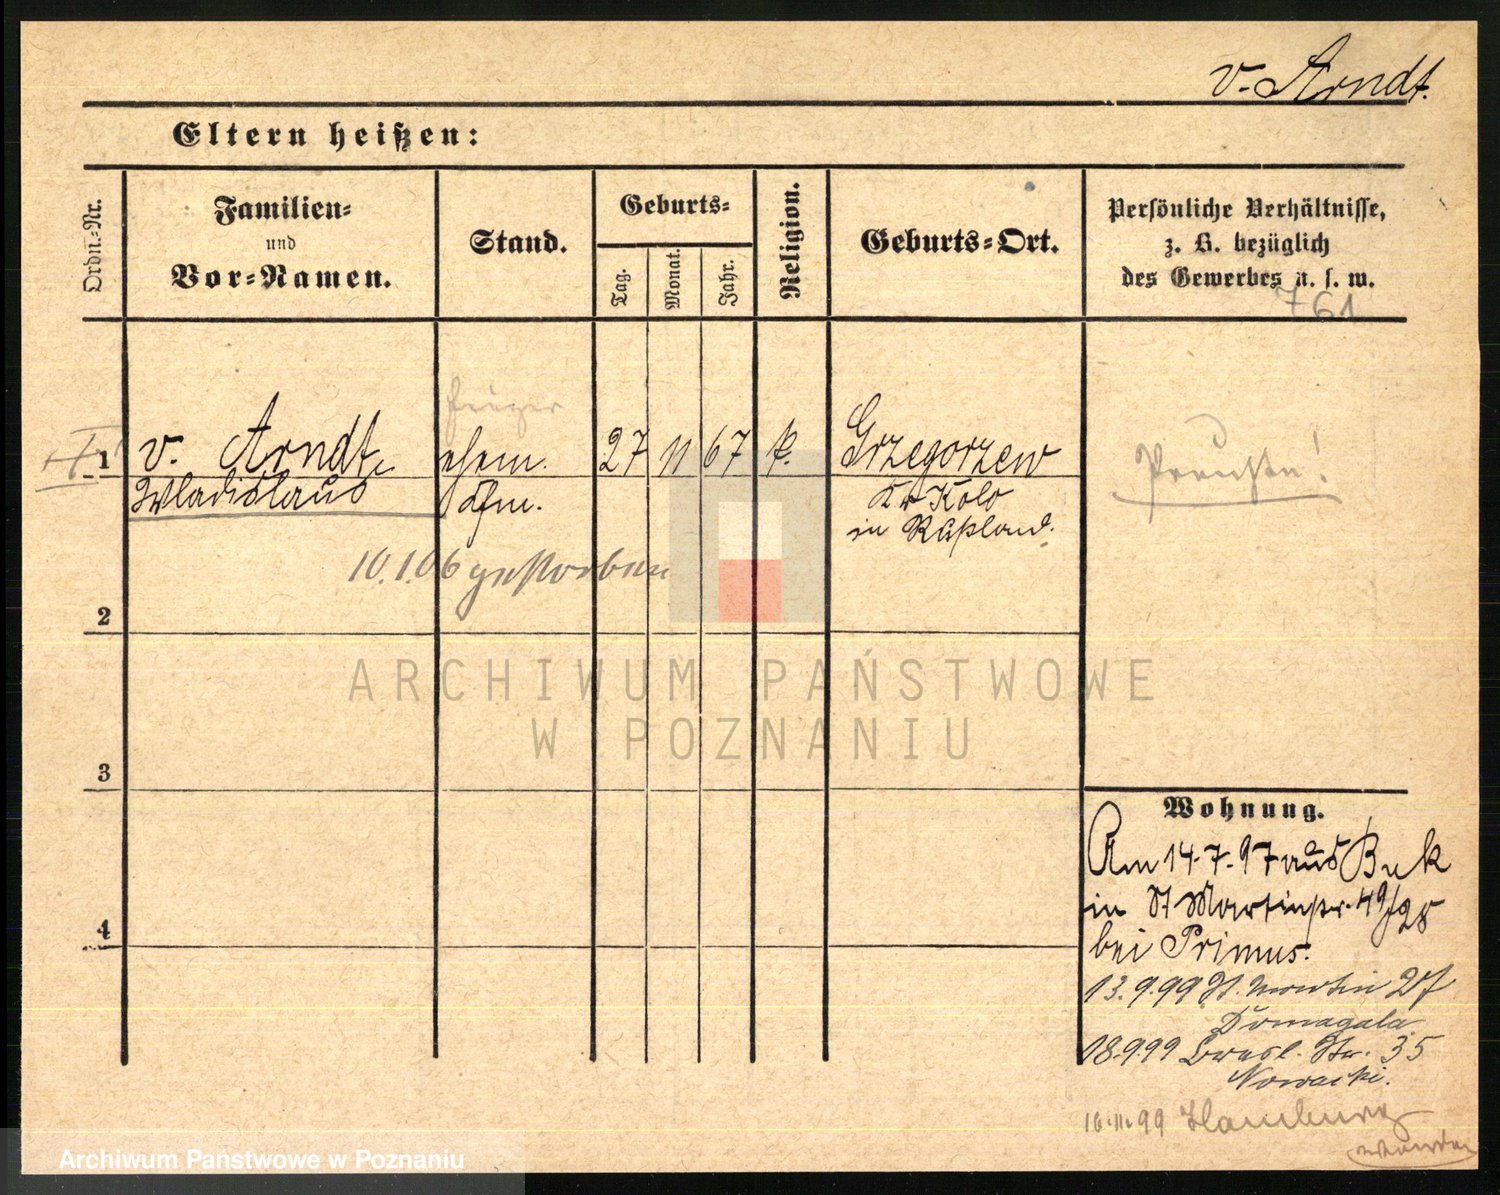 v. Arndt.
Eltern heißen:
Ordn.-Nr.
Familien-
und
Vor-Namen.
Stand.
Geburts-
Tag.
Monat.
Jahr.
Religion.
Geburts-Ort.
Persönliche Verhältnisse,
z. B. bezüglich
des Gewerbes u. s. w.
761
1
v. Arndt,
Wladislaus
ehem.
27
11
67
k.
Grzegorzew
Kr Kolo
in Rußland.
Preuße!
10.1.06 gestorben
2
3
4
Wohnung.
Am 14.7.97 aus Buk
in St Martinstr. 49/28
bei Primus.
13.9.99 St. Martin 27
Domagala
18.9.99 Bresl. Str. 35
Nowacki.
16.11.99 Hamburg
ARCHIWUM PAŃSTWOWE
W POZNANIU
Archiwum Państwowe w Poznaniu